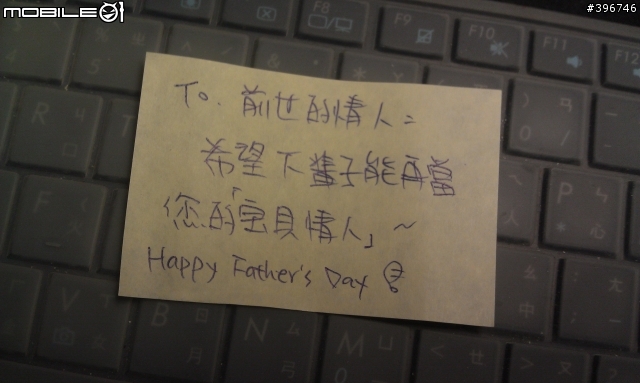 MOBILE01
#396746
To. 前世的情人:
希望下輩子能再當
您的「宝貝情人」~
Happy Father's Day
F8
F9
F10
F11
F12
R
F
P
V
B
N
M